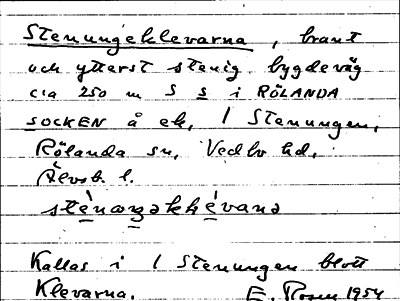 Stenungeklevarna, brant
och ytterst stenig bygdeväg
c:a 250 m S s i RÖLANDA
SOCKEN å ek. 1 Stenungen,
Rölanda sn, Vedbo hd,
Älvsb. l.
Kallas i 1 Stenungen blott
Klevarna. E. Rosm 1954